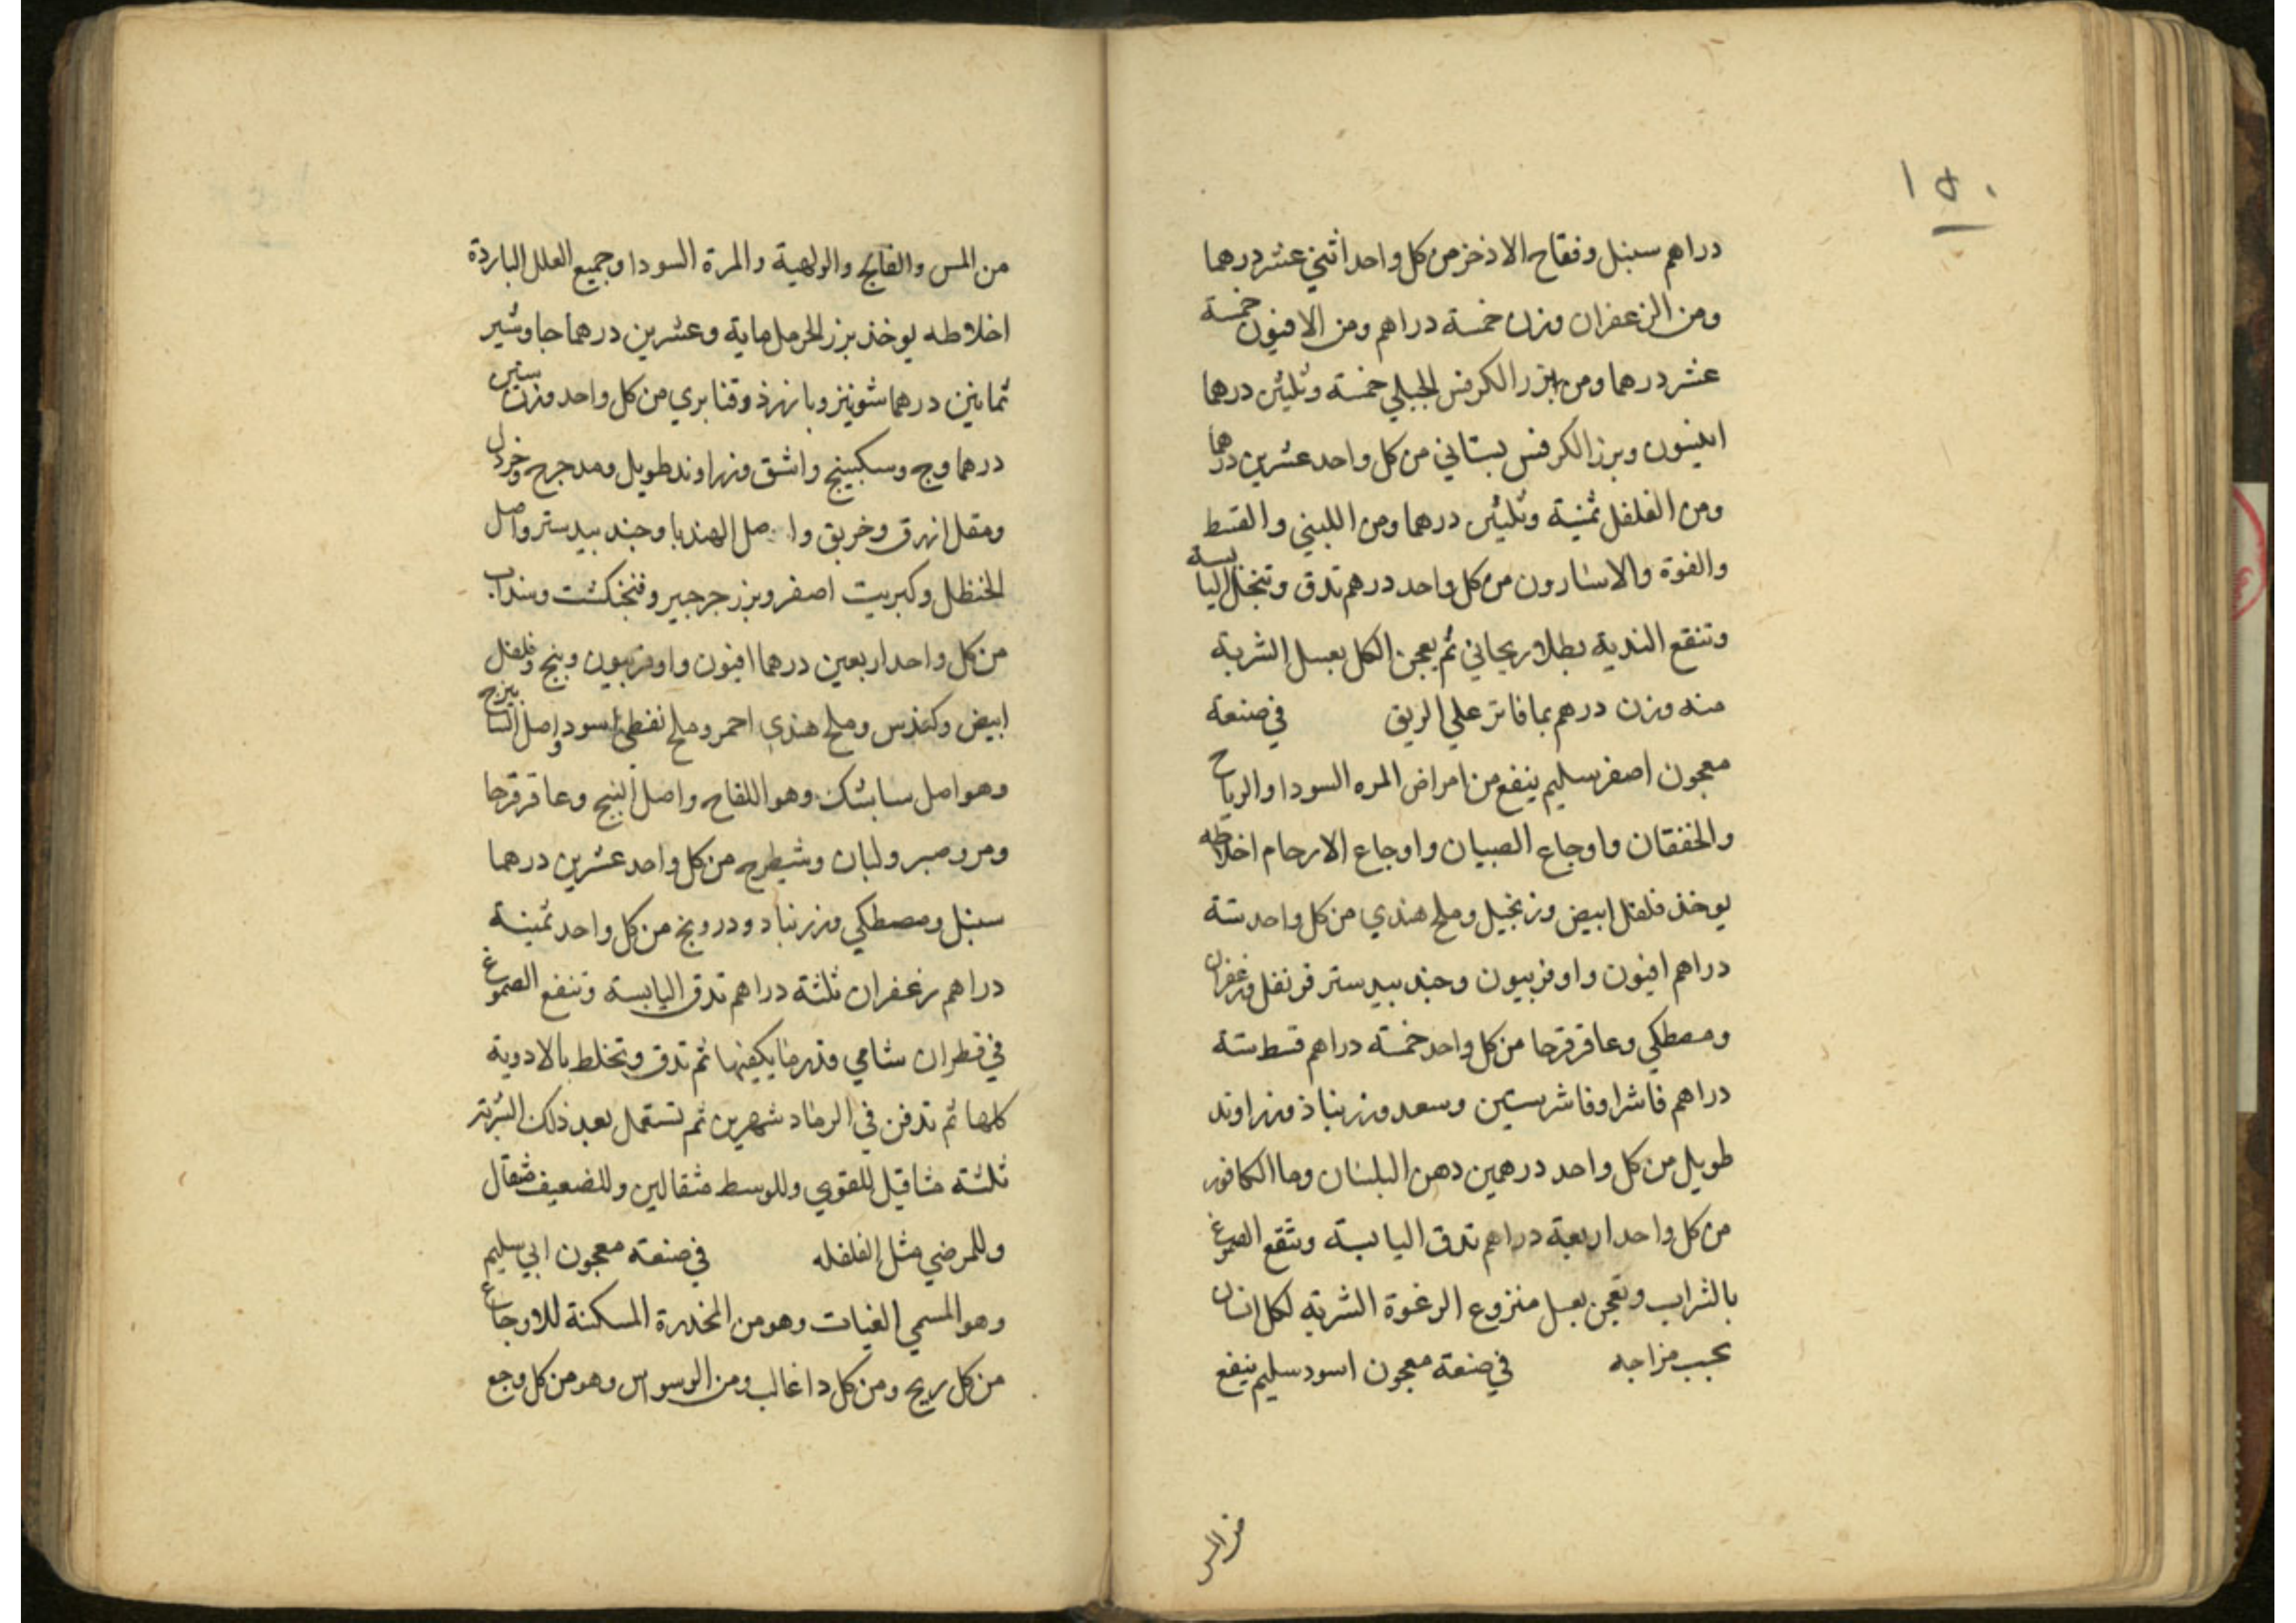 ١٥٠
دراهم سنبل وفقاح الاذخر من كل واحد اثني عشر درهما
ومن الزعفران وزن خمسة دراهم ومن الافيون خمسة
عشر درهما ومن بزر الكرفس الجبلي خمسة وثلثين درهما
انيسون وبزر الكرفس بستاني من كل واحد عشرين درهما
ومن الفلفل ثمنية وثلثين درهما ومن اللبني والقسط
والفوة والاسارون من كل واحد درهم تدق وتنخل اليابسة
وتنقع الندية بطلا ريحاني ثم يعجن الكل بعسل الشربة
منه وزن درهم بما فاتر علي الريق في صنعة
معجون اصفر سليم ينفع من امراض المره السودا والرياح
والخفقان واوجاع الصبيان واوجاع الارحام اخلاطه
يوخذ فلفل ابيض وزنجبيل وملح هندي من كل واحد ستة
دراهم افيون واوفربيون وجند بيدستر قرنفل وزعفران
ومصطكي وعاقرقرحا من كل واحد خمسة دراهم قسط ستة
دراهم فاشرا وفاشرستين وسعد وزرنباذ وزراوند
طويل من كل واحد درهمين دهن البلسان وما الكافور
من كل واحد اربعة دراهم تدق اليابسة وتنقع الصموغ
بالشراب وتعجن بعسل منزوع الرغوة الشربة لكل انسان
بحسب مزاجه في صنعة معجون اسود سليم ينفع
من المس
من المس والفالج والولهية والمرة السودا وجميع العلل الباردة
اخلاطه يوخذ بزر الحرمل ماية وعشرين درهما جاوشير
ثمانين درهما شونيز وبانرذ وقنابري من كل واحد وزن ستين
درهما وج وسكبينج واشق وزراوند طويل ومدحرج وخردل
ومقل ازرق وخربق واصل الهندبا وجند بيدستر واصل
الحنظل وكبريت اصفر وبزر جرجير وفنجنكشت وسنداب
من كل واحد اربعين درهما افيون واوفربيون وبنج وفلفل
ابيض وكندس وملح هندي احمر وملح نفطي اسود واصل السابيزج
وهو اصل سابشك وهو اللفاح واصل البنج وعاقرقرحا
ومر وصبر ولبان وشيطرج من كل واحد عشرين درهما
سنبل ومصطكي وزرنباد ودرونج من كل واحد ثمنية
دراهم زعفران ثلثة دراهم تدق اليابسة وتنقع الصموغ
في قطران شامي قدر ما يكفيها ثم تدق وتخلط بالادوية
كلها ثم تدفن في الرماد شهرين ثم تستعمل بعد ذلك الشربة
ثلثة مثاقيل للقوي وللوسط مثقالين وللضعيف مثقال
وللمرضي مثل الفلفله في صنعة معجون ابي سليم
وهو المسمي الغياث وهو من المخدرة المسكنة للاوجاع
من كل ريح ومن كل دا غالب ومن الوسواس وهو من كل وجع